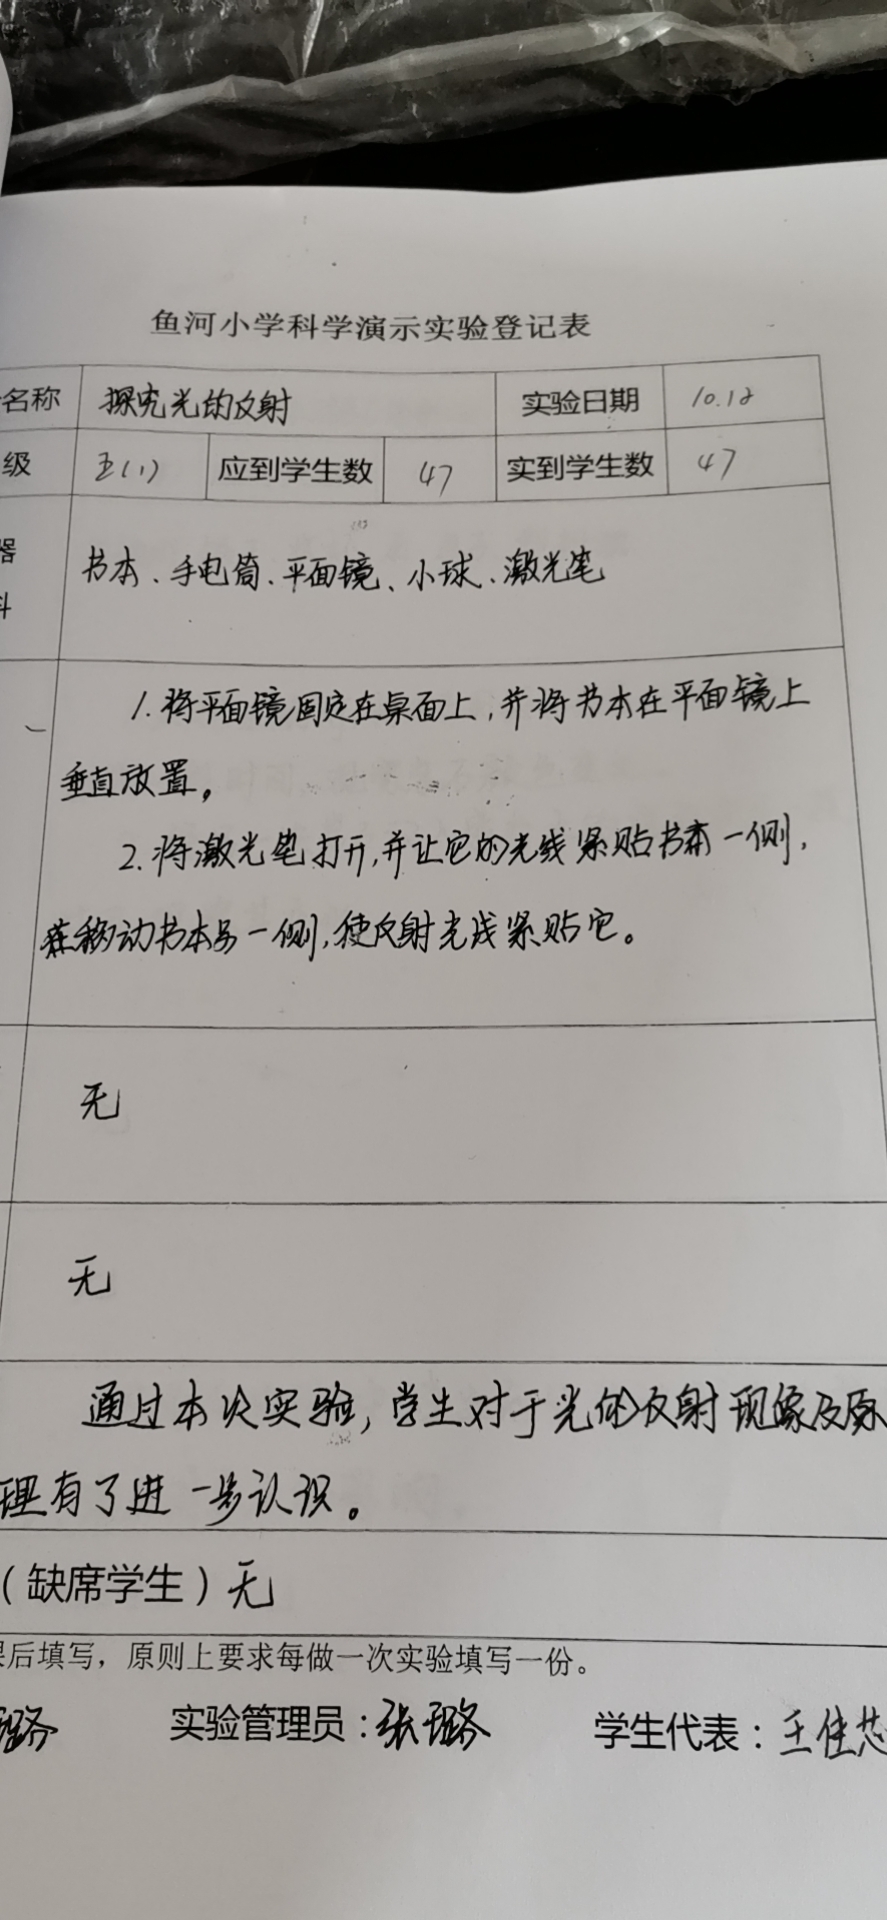 鱼河小学科学演示实验登记表
名称 探究光的反射 实验日期 10.12
级 五(1) 应到学生数 47 实到学生数 47
器
书本、手电筒、平面镜、小球、激光笔
1.将平面镜固定在桌面上,并将书本在平面镜上
垂直放置。
2.将激光笔打开,并让它的光线紧贴书本一侧,
在移动书本另一侧,使反射光线紧贴它。
无
无
通过本次实验,学生对于光的反射现象及原
理有了进一步认识。
(缺席学生)无
后填写,原则上要求每做一次实验填写一份。
璐 实验管理员:张璐 学生代表:王佳芯